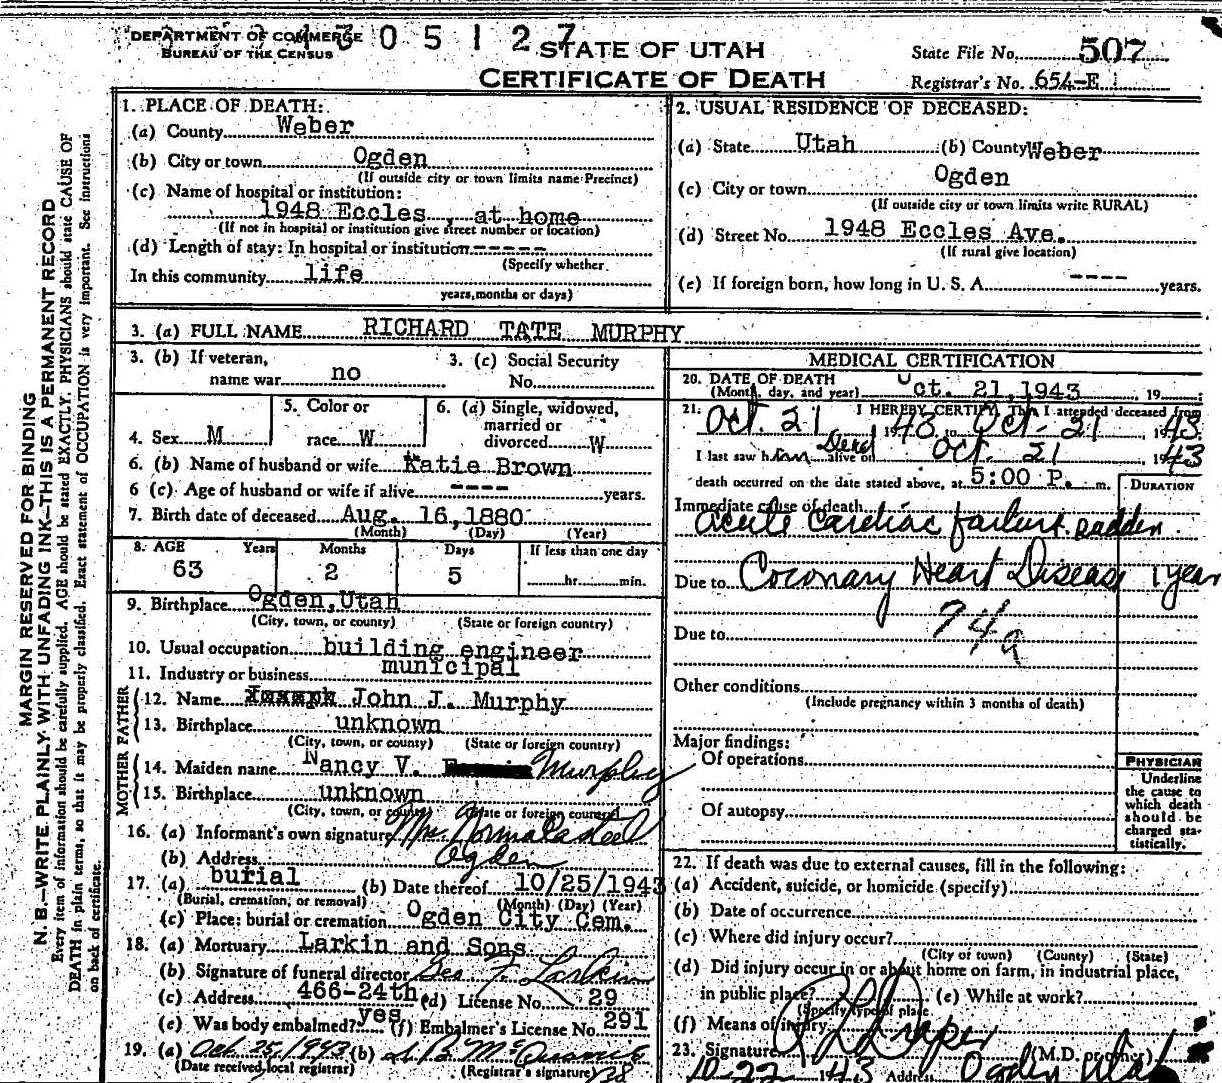 DEPARTMENT OF COMMERCE
BUREAU OF THE CENSUS
4305127
STATE OF UTAH
CERTIFICATE OF DEATH
State File No. 507
Registrar's No. 654-E
MARGIN RESERVED FOR BINDING
N. B.—WRITE PLAINLY WITH UNFADING INK—THIS IS A PERMANENT RECORD
Every item of information should be carefully supplied. AGE should be stated EXACTLY. PHYSICIANS should state CAUSE OF
DEATH in plain terms, so that it may be properly classified. Exact statement of OCCUPATION is very important. See instructions
on back of certificate.
1. PLACE OF DEATH:
(a) County Weber
(b) City or town Ogden
(If outside city or town limits name Precinct)
(c) Name of hospital or institution:
1948 Eccles , at home
(If not in hospital or institution give street number or location)
(d) Length of stay: In hospital or institution -----
(Specify whether
In this community life
years, months or days)
2. USUAL RESIDENCE OF DECEASED:
(a) State Utah (b) County Weber
(c) City or town Ogden
(If outside city or town limits write RURAL)
(d) Street No. 1948 Eccles Ave.
(If rural give location)
(e) If foreign born, how long in U. S. A. ---- years.
3. (a) FULL NAME RICHARD TATE MURPHY
3. (b) If veteran,
name war no
3. (c) Social Security
No.
4. Sex M
5. Color or
race W
6. (a) Single, widowed,
married or
divorced W
6. (b) Name of husband or wife Katie Brown
6 (c) Age of husband or wife if alive ---- years.
7. Birth date of deceased Aug. 16,1880
(Month) (Day) (Year)
8. AGE Years Months Days If less than one day
63 2 5 hr. min.
9. Birthplace Ogden,Utah
(City, town, or county) (State or foreign country)
10. Usual occupation building engineer
11. Industry or business municipal
FATHER
12. Name John J. Murphy
13. Birthplace unknown
(City, town, or county) (State or foreign country)
MOTHER
14. Maiden name Nancy V. Murphy
15. Birthplace unknown
(City, town, or county) (State or foreign country)
16. (a) Informant's own signature
(b) Address Ogden
17. (a) burial (b) Date thereof 10/25/1943
(Burial, cremation, or removal) (Month) (Day) (Year)
(c) Place: burial or cremation Ogden City Cem.
18. (a) Mortuary Larkin and Sons
(b) Signature of funeral director Geo F. Larkin
(c) Address 466-24th (d) License No. 29
(e) Was body embalmed? yes (f) Embalmer's License No. 291
19. (a) Oct 25, 1943 (b)
(Date received local registrar) (Registrar's signature)
MEDICAL CERTIFICATION
20. DATE OF DEATH
(Month, day, and year) Oct. 21,1943 , 19
21. I HEREBY CERTIFY, That I attended deceased from
Oct. 21 1943 to Oct - 21 , 1943
I last saw him Dead alive on Oct. 21 , 1943
death occurred on the date stated above, at 5:00 P. m.
DURATION
Immediate cause of death
acute cardiac failure sudden
Due to Coronary Heart Disease 1 year
Due to 94a
Other conditions
(Include pregnancy within 3 months of death)
Major findings:
Of operations
Of autopsy
PHYSICIAN
Underline
the cause to
which death
should be
charged sta-
tistically.
22. If death was due to external causes, fill in the following:
(a) Accident, suicide, or homicide (specify)
(b) Date of occurrence
(c) Where did injury occur?
(City of town) (County) (State)
(d) Did injury occur in or about home on farm, in industrial place,
in public place? (e) While at work?
(Specify type of place
(f) Means of injury
23. Signature Draper (M.D. or other)
10-22 1943 Address Ogden Utah